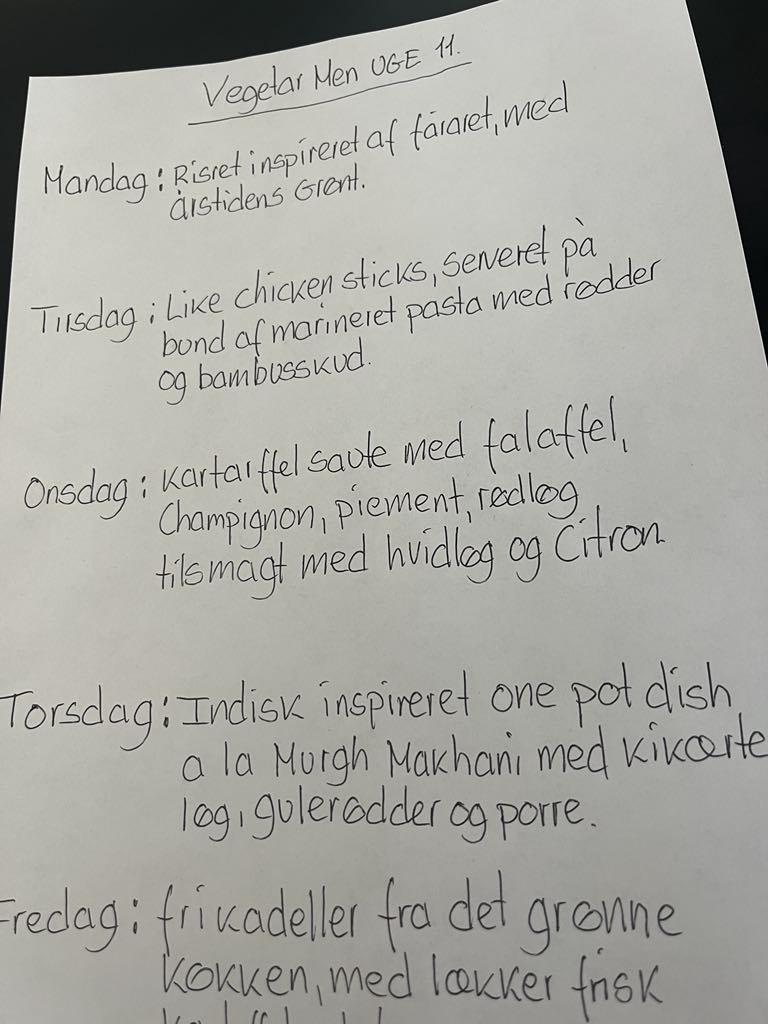 Vegetar Men UGE 11.
Mandag: Risret inspireret af fåraret, med
årstidens Grønt.
Tirsdag: Like chicken sticks, serveret på
bund af marineret pasta med rødder
og bambusskud.
Onsdag: Kartarffel saute med falaffel,
Champignon, piement, rødløg
tilsmagt med hvidløg og Citron
Torsdag: Indisk inspireret one pot dish
a la Murgh Makhani med kikærte
løg, gulerødder og porre.
Fredag: frikadeller fra det grønne
køkken, med lækker frisk